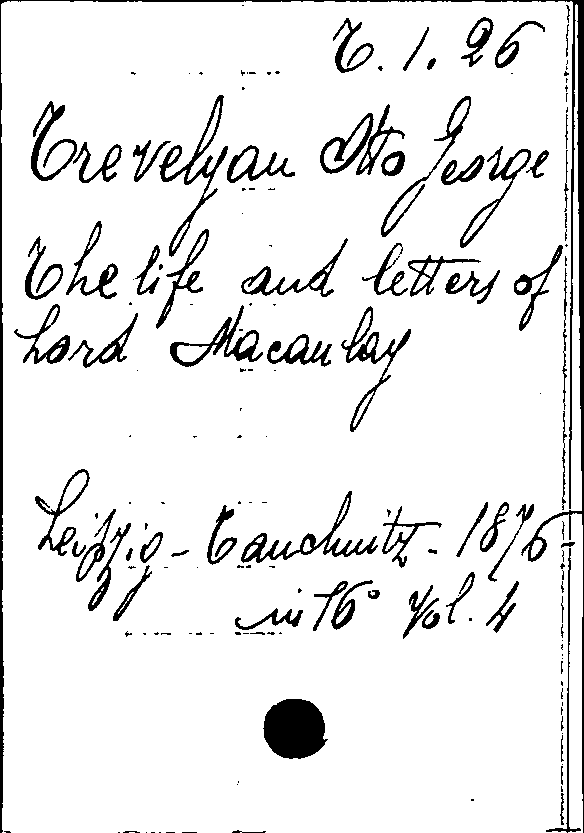 T. 1. 26
Trevelyan Otto George
The life and letters of
Lord Macaulay
Leipzig - Tauchnitz - 1876 -
in 16° Vol. 4